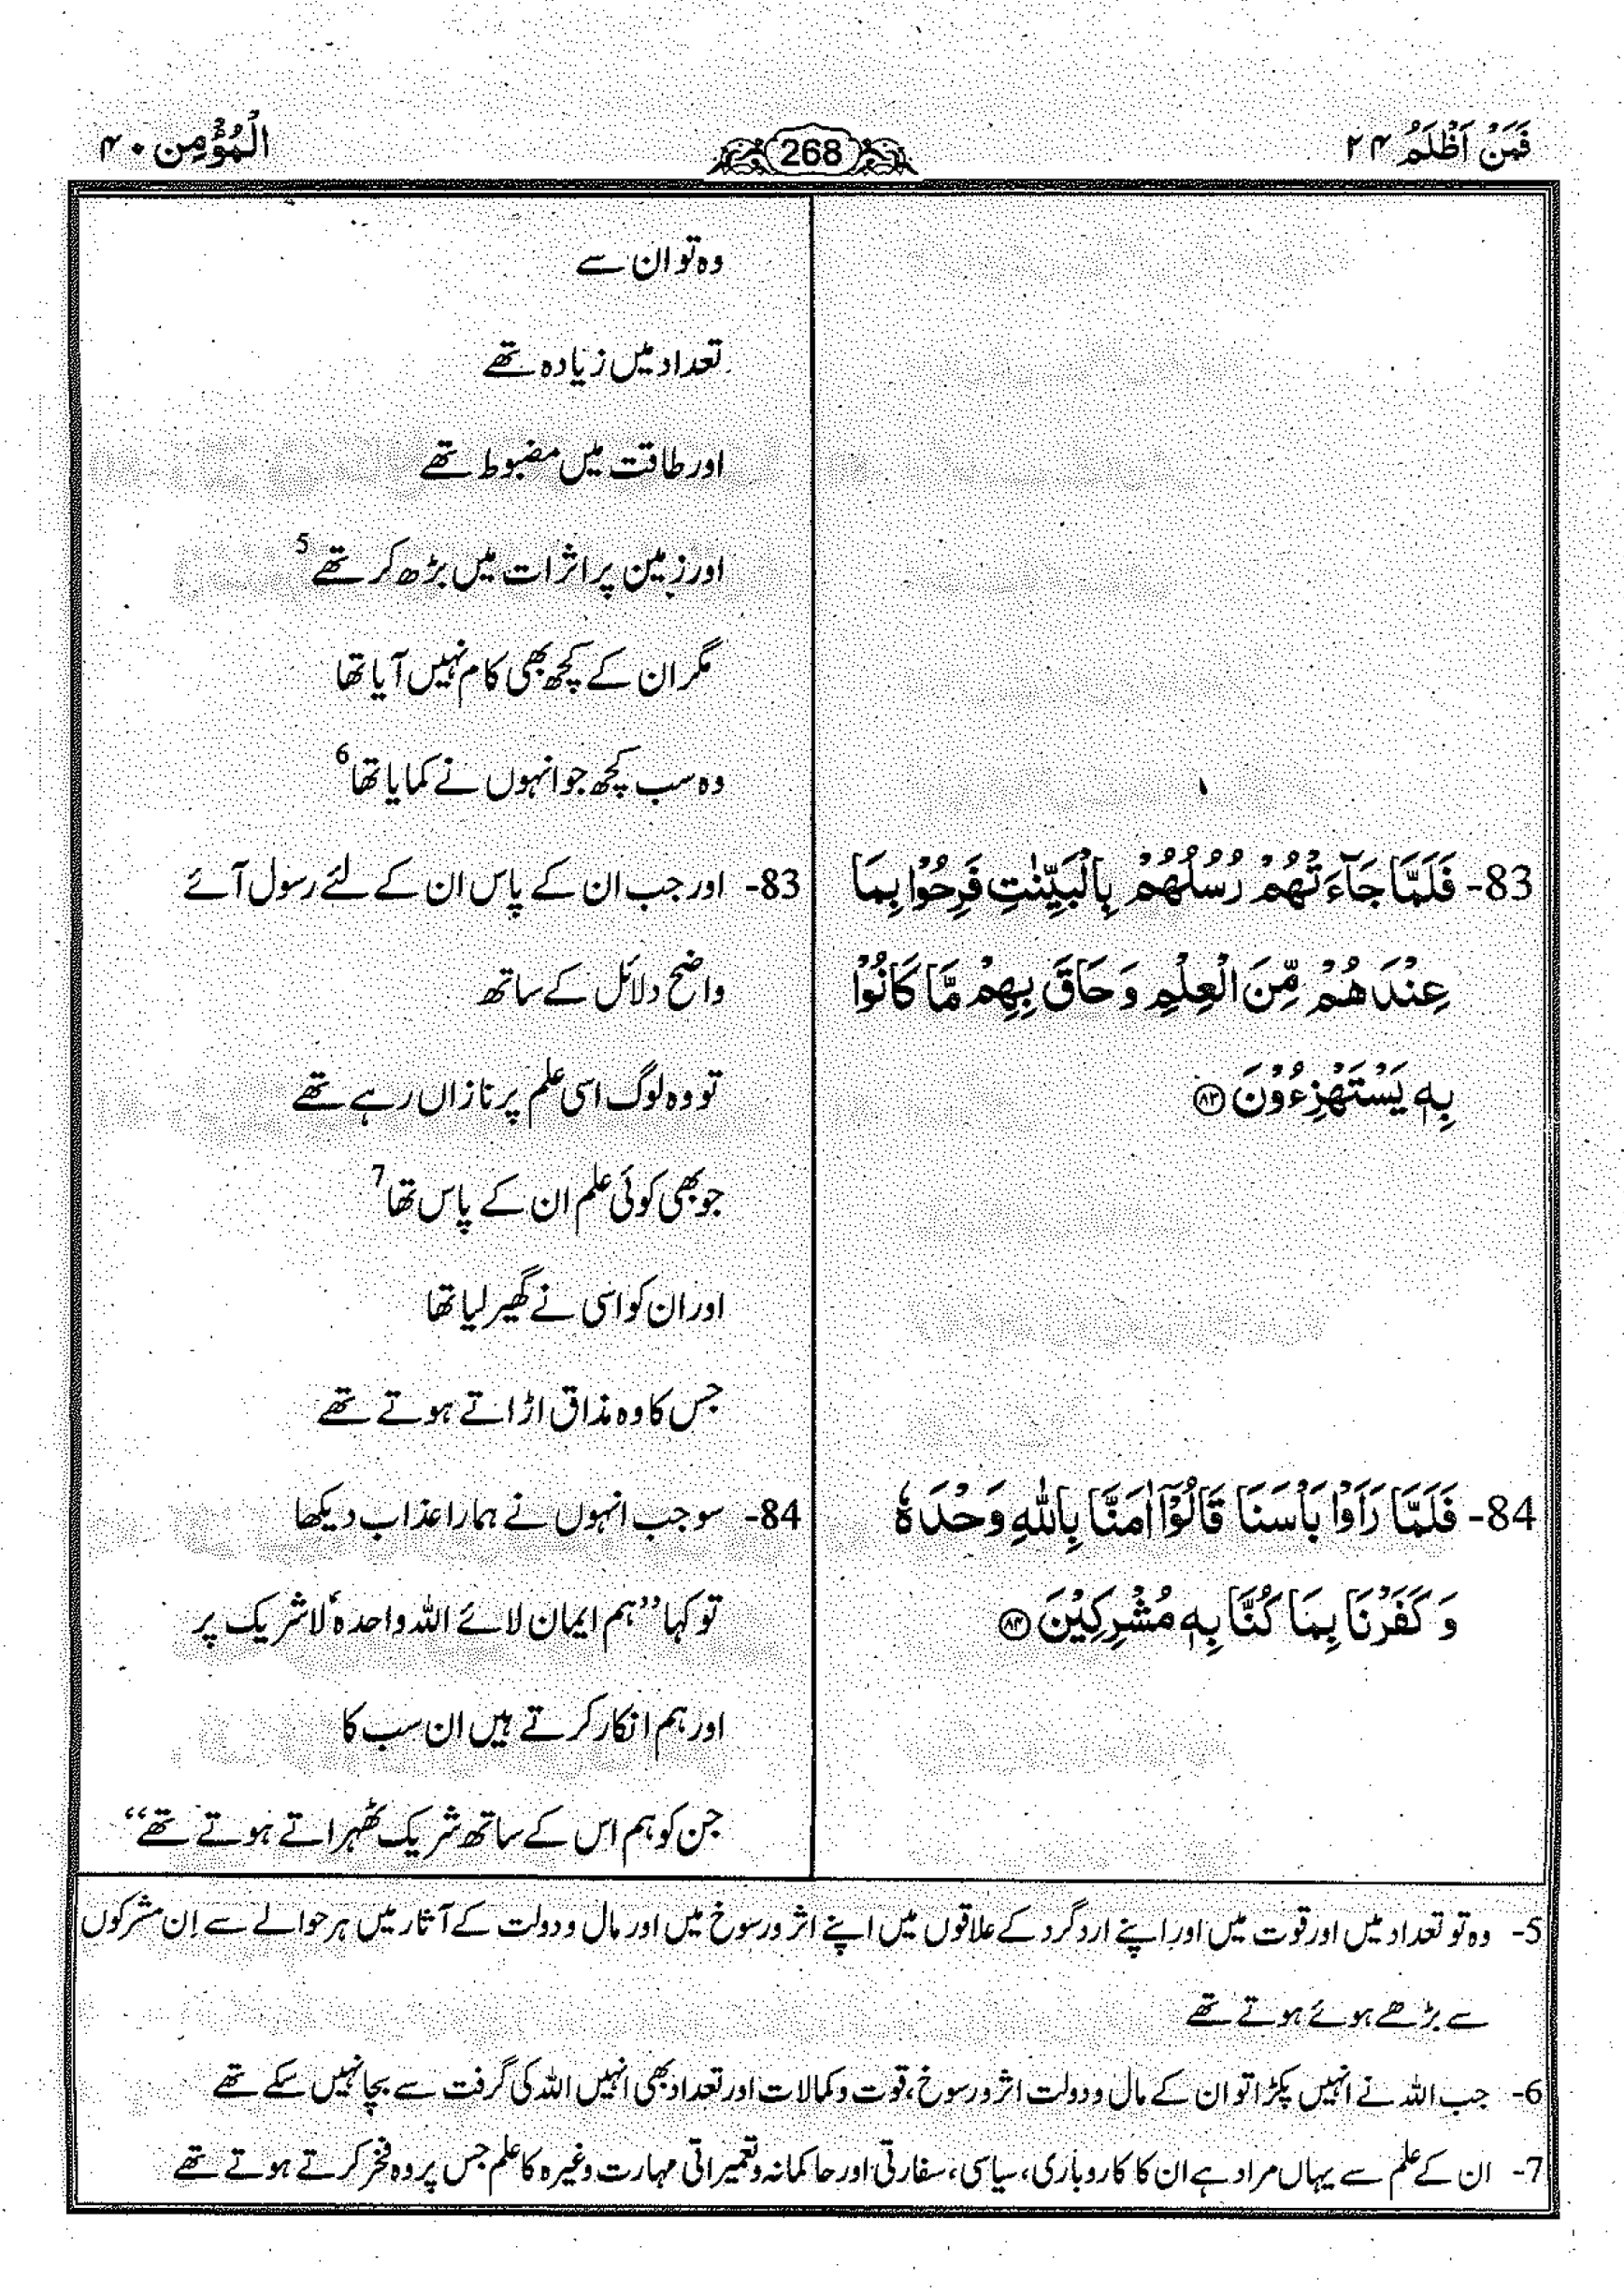 فَمَنْ اَظْلَمُ ۲۴
268
الْمُؤْمِن ۴۰
وہ تو ان سے
تعداد میں زیادہ تھے
اور طاقت میں مضبوط تھے
اور زمین پر اثرات میں بڑھ کر تھے 5
مگر ان کے کچھ بھی کام نہیں آیا تھا
وہ سب کچھ جو انہوں نے کمایا تھا 6
83- فَلَمَّا جَآءَتْهُمْ رُسُلُهُمْ بِالْبَيِّنٰتِ فَرِحُوْا بِمَا
عِنْدَهُمْ مِّنَ الْعِلْمِ وَحَاقَ بِهِمْ مَّا كَانُوْا
بِهٖ يَسْتَهْزِءُوْنَ ۝۸۳
83- اور جب ان کے پاس ان کے لئے رسول آئے
واضح دلائل کے ساتھ
تو وہ لوگ اسی علم پر نازاں رہے تھے
جو بھی کوئی علم ان کے پاس تھا 7
اور ان کو اسی نے گھیر لیا تھا
جس کا وہ مذاق اڑاتے ہوتے تھے
84- فَلَمَّا رَاَوْا بَاْسَنَا قَالُوْۤا اٰمَنَّا بِاللّٰهِ وَحْدَهٗ
وَكَفَرْنَا بِمَا كُنَّا بِهٖ مُشْرِكِيْنَ ۝۸۴
84- سو جب انہوں نے ہمارا عذاب دیکھا
تو کہا ”ہم ایمان لائے اللہ واحدہٗ لا شریک پر
اور ہم انکار کرتے ہیں ان سب کا
جن کو ہم اس کے ساتھ شریک ٹھہراتے ہوتے تھے“
5- وہ تو تعداد میں اور قوت میں اور اپنے ارد گرد کے علاقوں میں اپنے اثر ورسوخ میں اور مال و دولت کے آثار میں ہر حوالے سے اِن مشرکوں
سے بڑھے ہوئے ہوتے تھے
6- جب اللہ نے انہیں پکڑا تو ان کے مال و دولت اثر ورسوخ، قوت و کمالات اور تعداد بھی انہیں اللہ کی گرفت سے بچا نہیں سکے تھے
7- ان کے علم سے یہاں مراد ہے ان کا کاروباری، سیاسی، سفارتی اور حاکمانہ و تعمیراتی مہارت وغیرہ کا علم جس پر وہ فخر کرتے ہوتے تھے